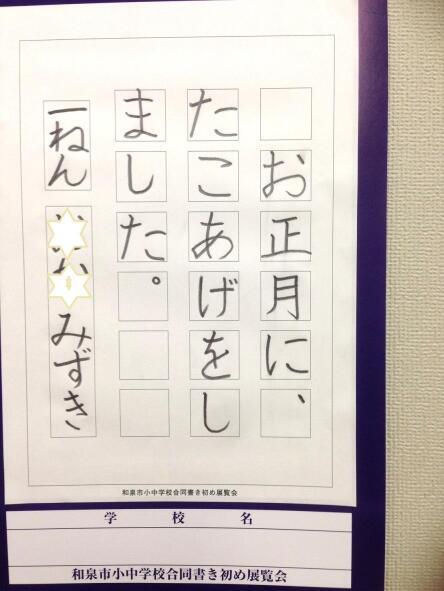 お正月に、
たこあげをし
ました。
一ねん
みずき
和泉市小中学校合同書き初め展覧会
学校名
和泉市小中学校合同書き初め展覧会